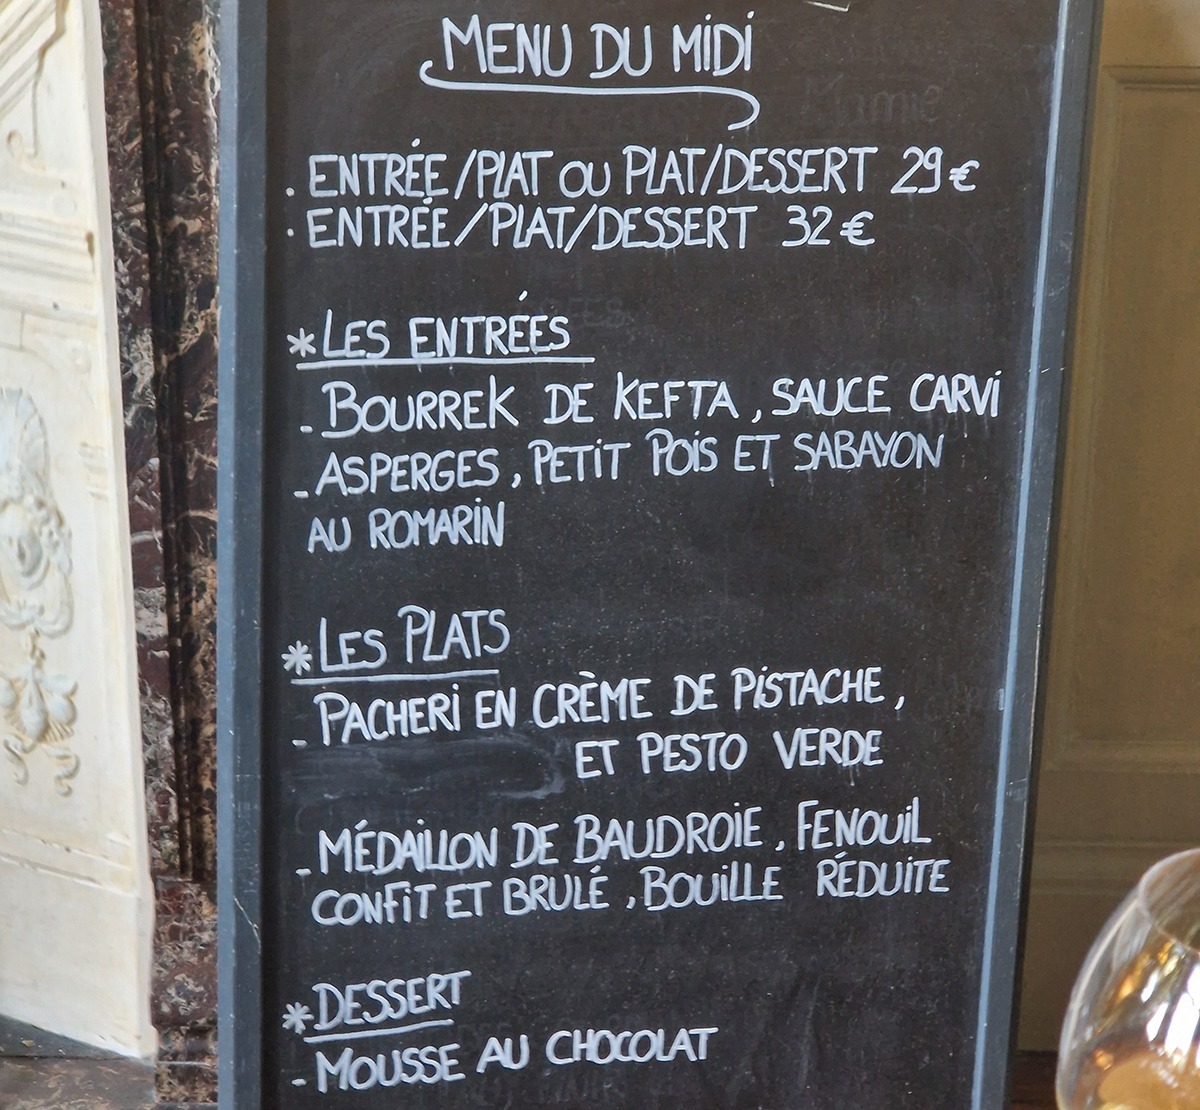 MENU DU MIDI
. ENTRÉE/PLAT OU PLAT/DESSERT 29€
. ENTRÉE/PLAT/DESSERT 32€
*LES ENTRÉES
- BOURREK DE KEFTA, SAUCE CARVI
- ASPERGES, PETIT POIS ET SABAYON
AU ROMARIN
*LES PLATS
- PACHERI EN CRÈME DE PISTACHE,
ET PESTO VERDE
- MÉDAILLON DE BAUDROIE, FENOUIL
CONFIT ET BRULÉ, BOUILLE RÉDUITE
*DESSERT
- MOUSSE AU CHOCOLAT